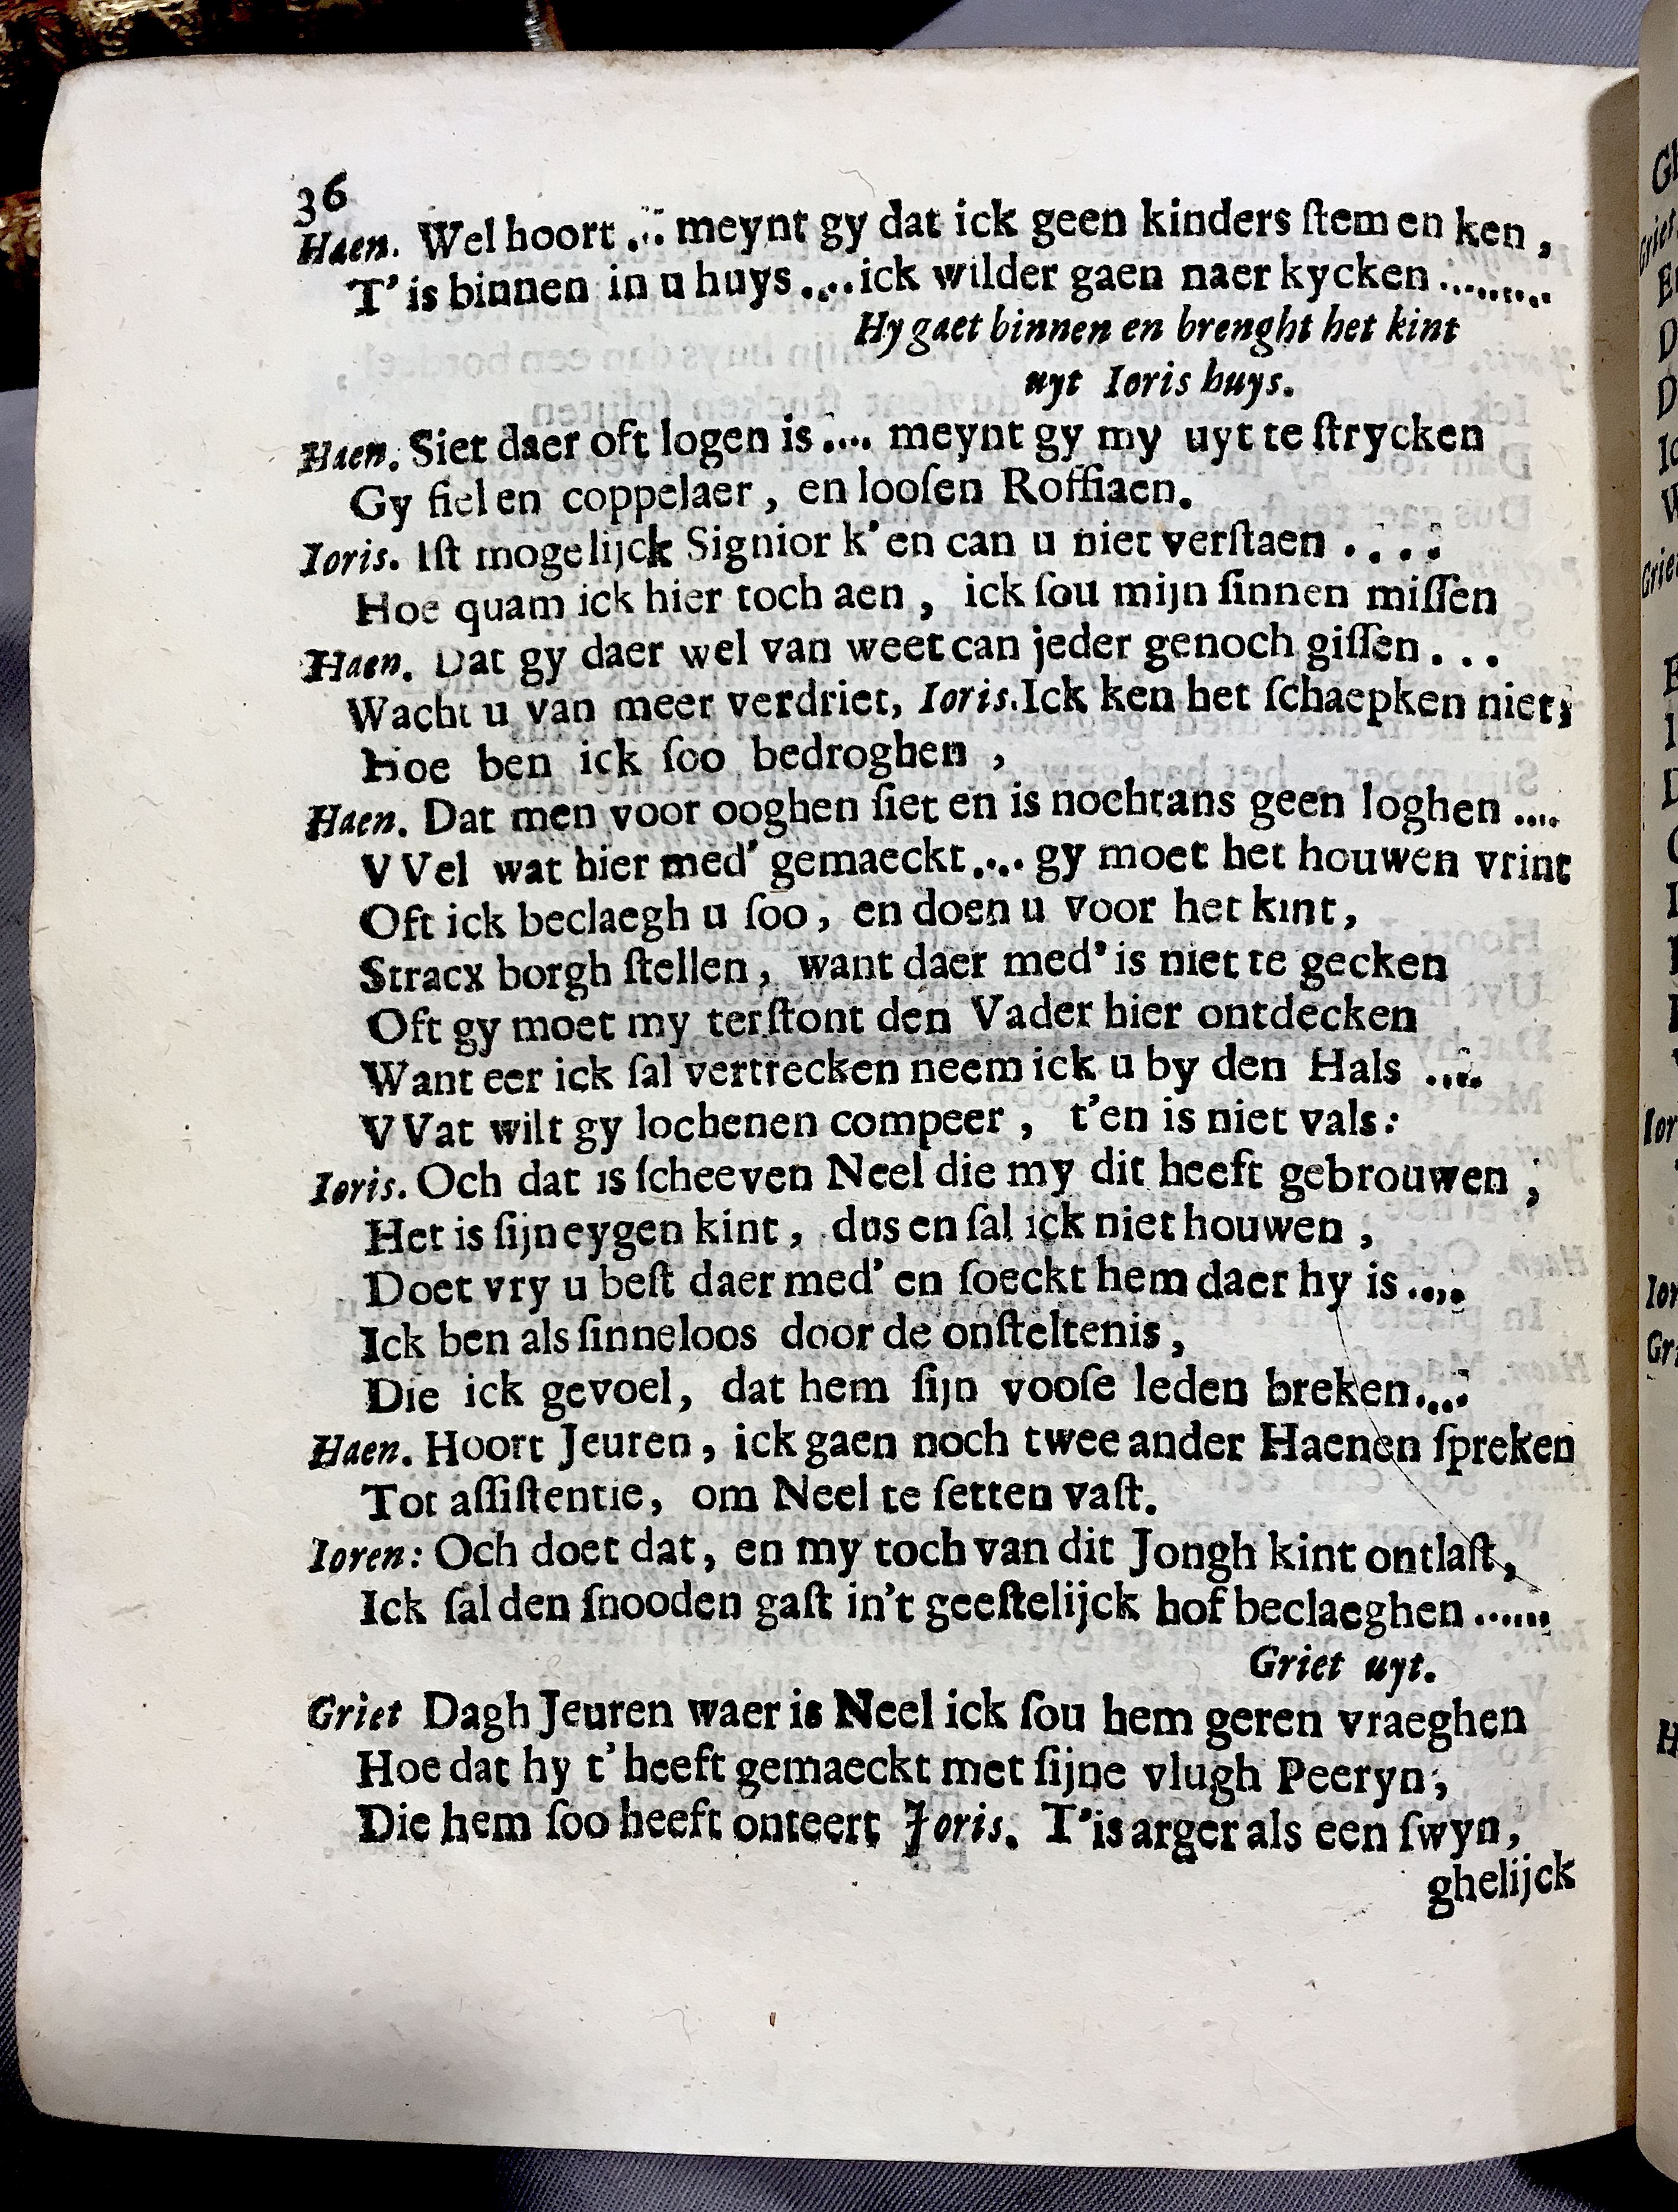 36
Haen. Wel hoort .... meynt gy dat ick geen kinders ſtem en ken ,
T' is binnen in u huys .... ick wilder gaen naer kycken ........
Hy gaet binnen en brenght het kint
uyt Ioris huys.
Haen. Siet daer oft logen is .... meynt gy my uyt te ſtrycken
Gy fiel en coppelaer , en looſen Roffiaen.
Ioris. Iſt mogelijck Signior k'en can u niet verſtaen . . . .
Hoe quam ick hier toch aen , ick ſou mijn ſinnen miſſen
Haen. Dat gy daer wel van weet can jeder genoch giſſen . . .
Wacht u van meer verdriet, Ioris. Ick ken het ſchaepken niet;
Hoe ben ick ſoo bedroghen ,
Haen. Dat men voor ooghen ſiet en is nochtans geen loghen ....
VVel wat hier med' gemaeckt .... gy moet het houwen vrint
Oft ick beclaegh u ſoo , en doen u voor het kint,
Stracx borgh ſtellen , want daer med' is niet te gecken
Oft gy moet my terſtont den Vader hier ontdecken
Want eer ick ſal vertrecken neem ick u by den Hals ....
VVat wilt gy lochenen compeer , t'en is niet vals :
Ioris. Och dat is ſcheeven Neel die my dit heeft gebrouwen ;
Het is ſijn eygen kint , dus en ſal ick niet houwen ,
Doet vry u beſt daer med' en ſoeckt hem daer hy is ....
Ick ben als ſinneloos door de onſteltenis ,
Die ick gevoel, dat hem ſijn vooſe leden breken....
Haen. Hoort Jeuren , ick gaen noch twee ander Haenen ſpreken
Tot aſſiſtentie, om Neel te ſetten vaſt.
Ioren : Och doet dat , en my toch van dit Jongh kint ontlaſt,
Ick ſal den ſnooden gaſt in't geeſtelijck hof beclaeghen ......
Griet uyt.
Griet Dagh Jeuren waer is Neel ick ſou hem geren vraeghen
Hoe dat hy t' heeft gemaeckt met ſijne vlugh Peeryn ,
Die hem ſoo heeft onteert Joris. T'is arger als een ſwyn,
ghelijck